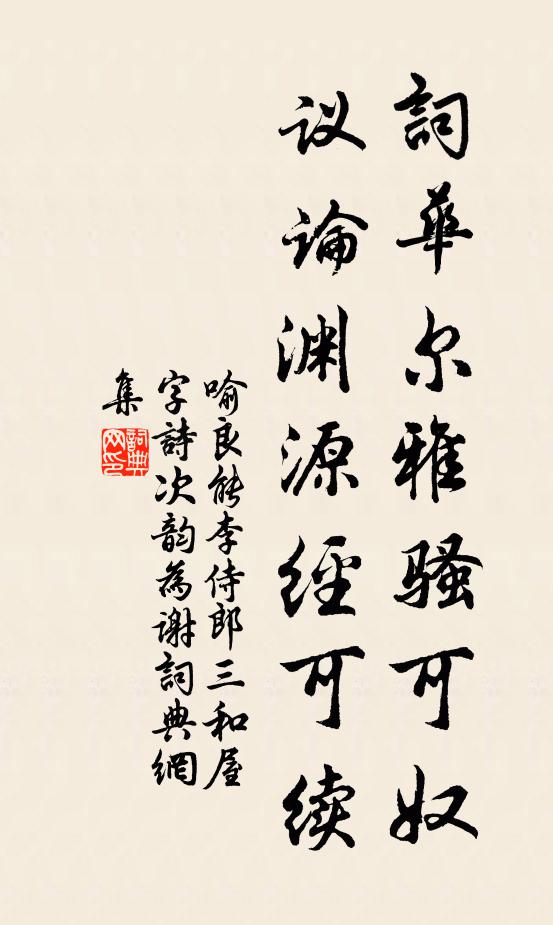 詞華尔雅騷可奴
议論渊源經可续
喻良能李侍郎三和屋
字詩次韵為谢詞典網
集
詞典
网印